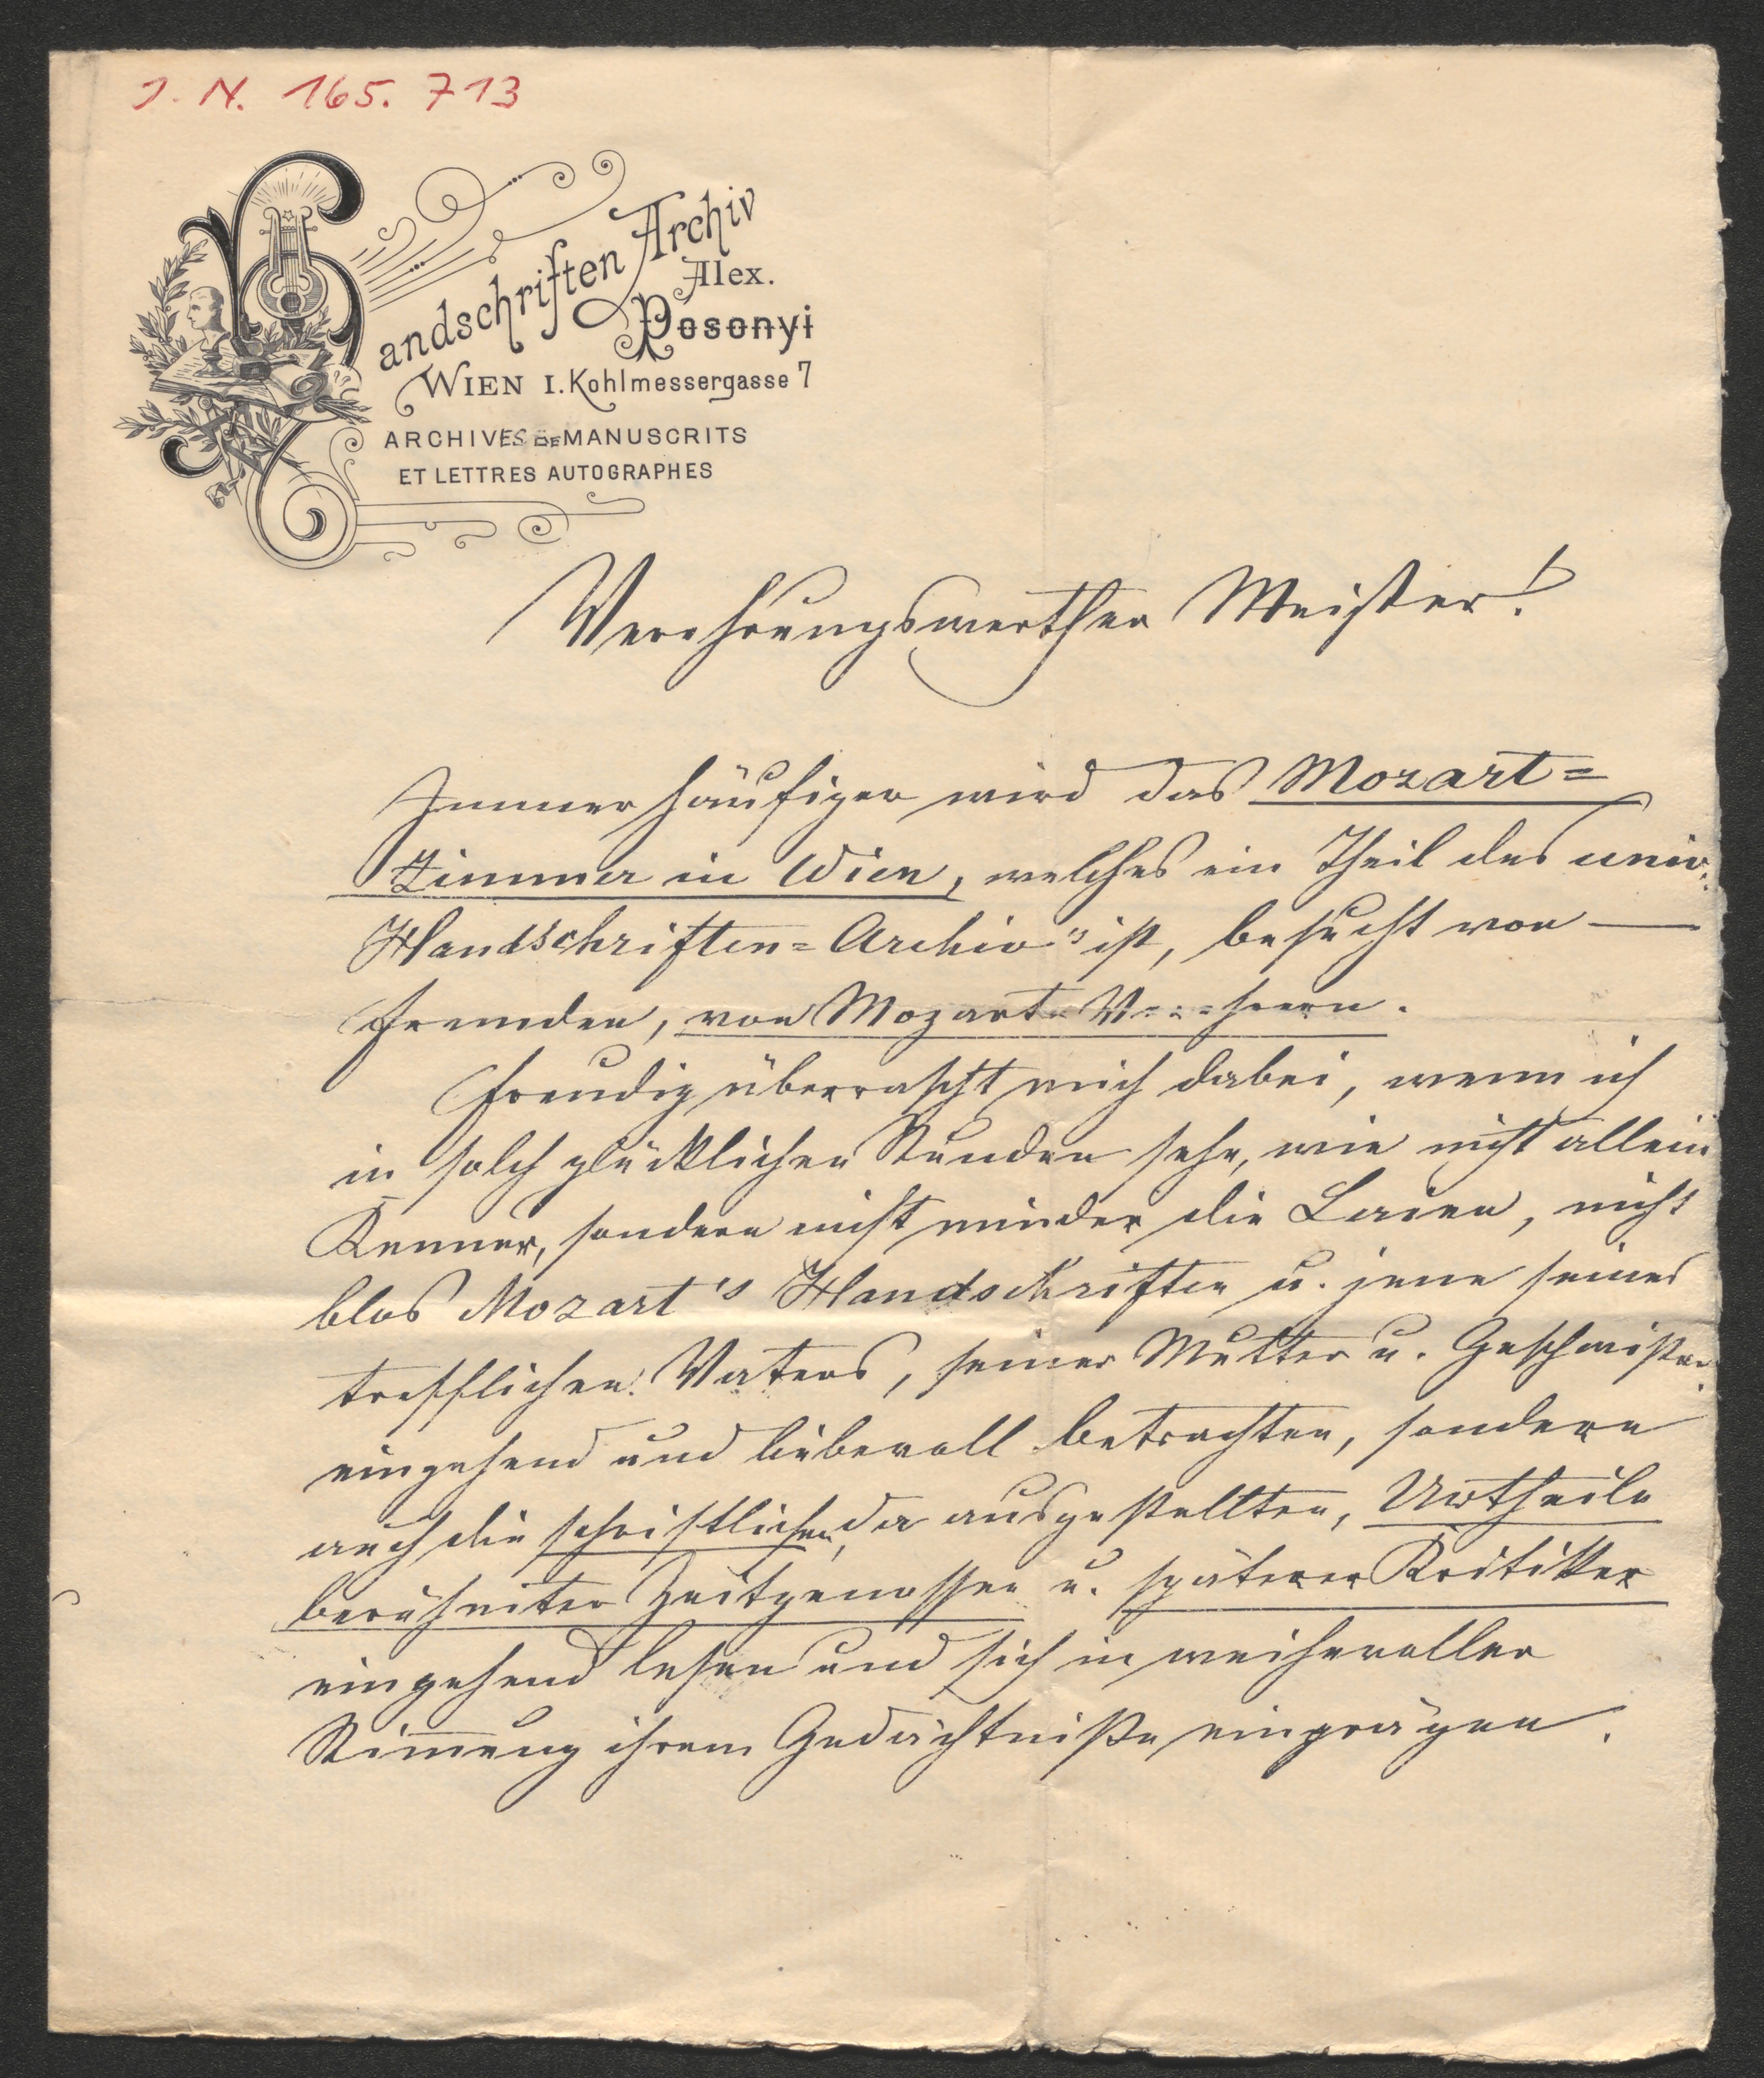 J. N. 165.713
Handschriften Archiv
Alex.
Posonyi
WIEN I. Kohlmessergasse 7
ARCHIVES DE MANUSCRITS
ET LETTRES AUTOGRAPHES
Verehrungswerther Meister!
Immer häufiger wird das Mozart=
Zimmer in Wien, welches ein Theil des univ:
Handschriften=Archiv's ist, besucht von —
Fremden, von Mozart=Verehrern.
Freudig überrascht mich dabei, wenn ich
in solch glücklichen Stunden sehe, wie nicht allein
Kenner, sondern nicht minder die Laien, nicht
blos Mozart's Handschriften u. jene seines
trefflichen Vaters, seiner Mutter u. Geschwister
eingehend und liebevoll betrachten, sondern
auch die schriftlichen, da ausgestellten, Urtheile
berühmter Zeitgenossen u. späterer Kritiker
eingehend lesen und sich in weihevoller
Stimmung ihrem Gedächtniße einprägen.